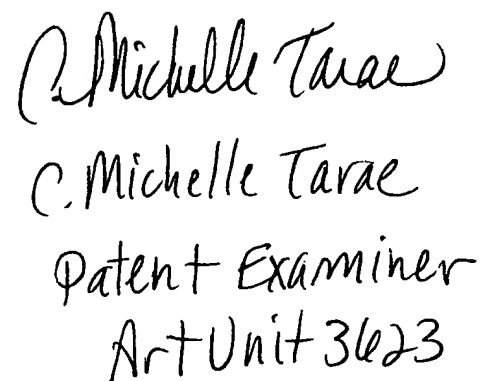 C. Michelle Tarae
C. Michelle Tarae
Patent Examiner
Art Unit 3623